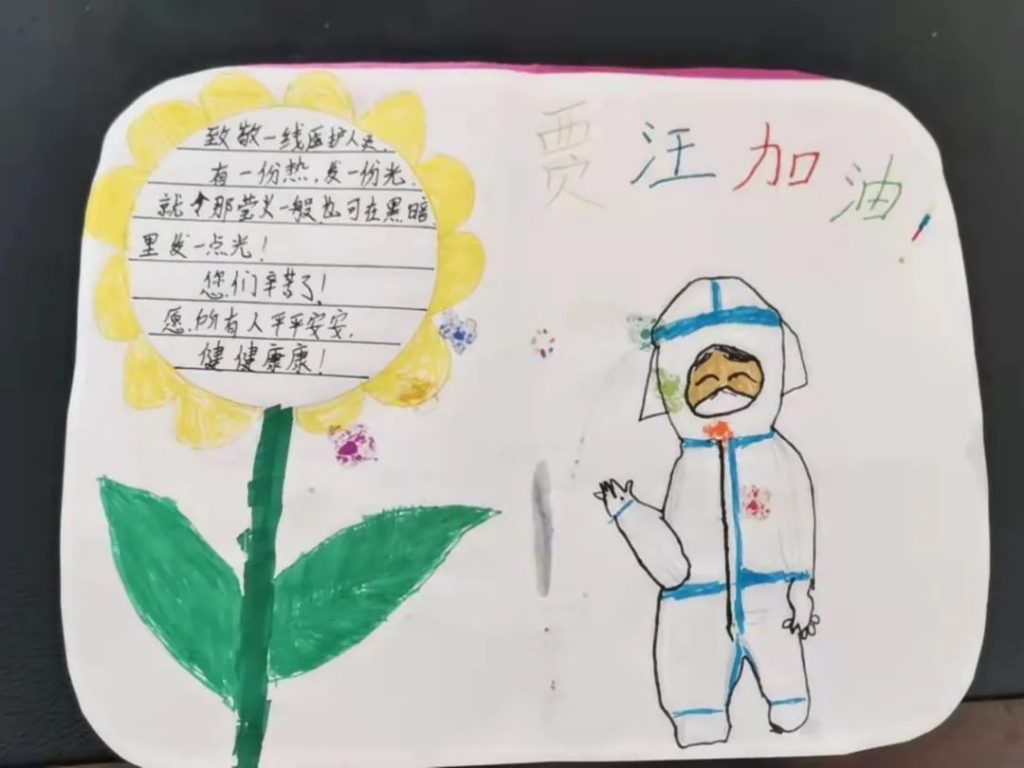 致敬一线医护人员.
有一份热,发一份光.
就令那萤火一般也可在黑暗
里发一点光!
您们辛苦了!
愿所有人平平安安.
健健康康!
贾汪加油!